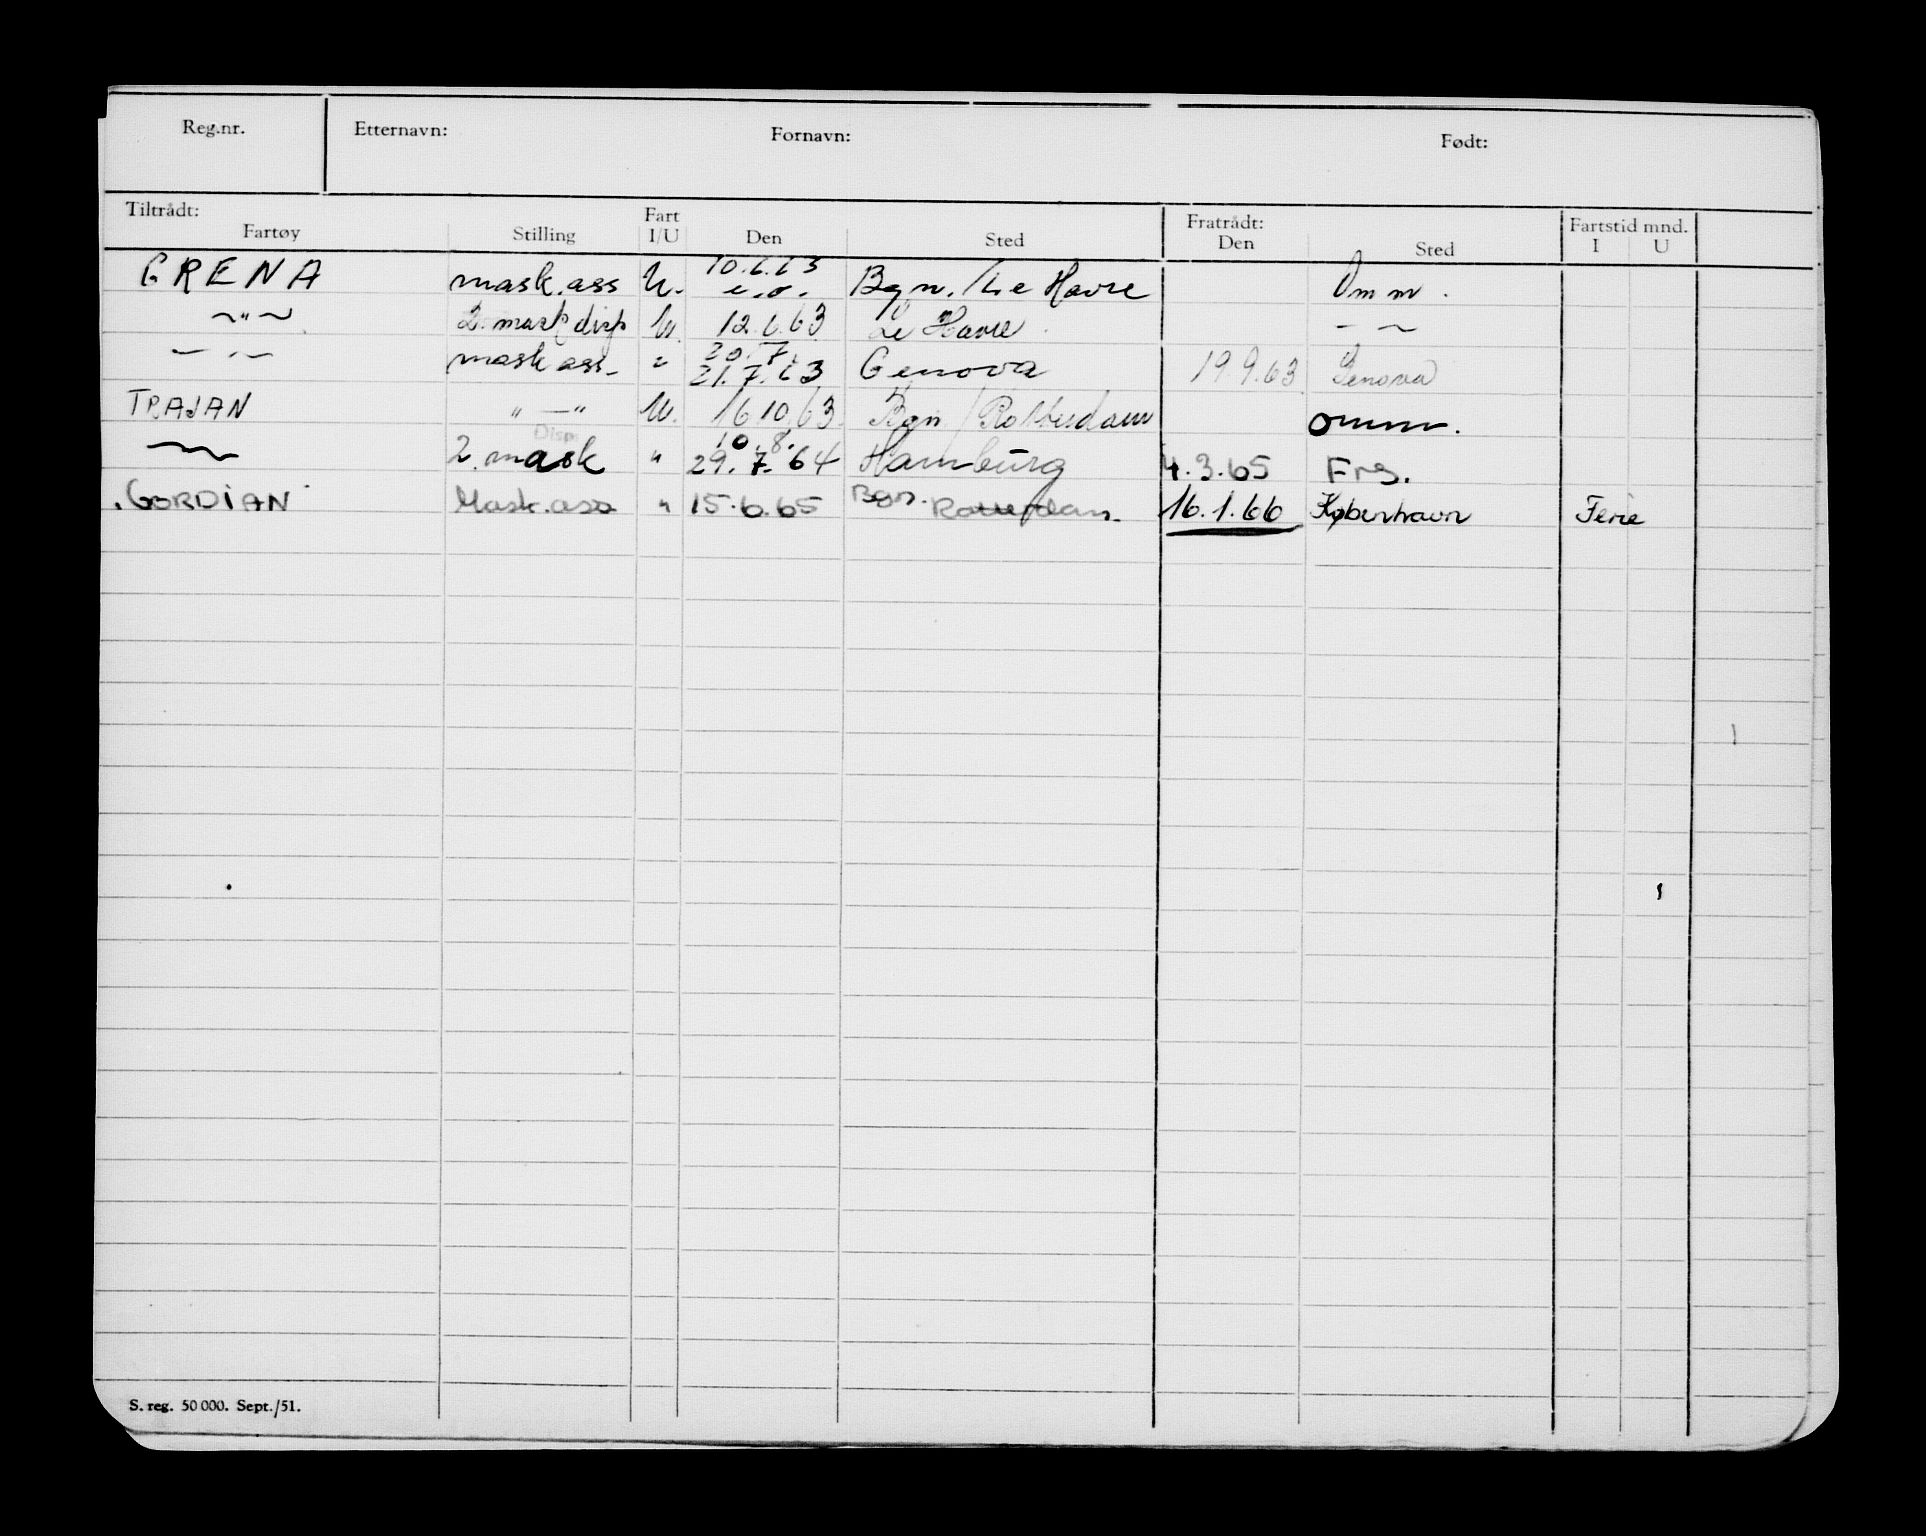 Reg.nr. Etternavn: Fornavn: Født:
Tiltrådt: Fart Fratrådt: Fartstid mnd.
Fartøy Stilling I/U Den Sted Den Sted I U
GRENA mask.ass U. 10.6.63 Bgn./Le Havre Omm.
e.o.
~"~ 2. mask disp U. 12.6.63 Le Havre — ~
20.7.
— " — mask ass. " 21.7.63 Genova 19.9.63 Genova
TRAJAN " — " U. 16.10.63 Bgn/Rotterdam omm.
Disp 10.8.
— 2. mask " 29.7.64 Hamburg 4.3.65 Frs.
GORDIAN Mask.ass " 15.6.65 Bgn. Rotterdam. 16.1.66 København Ferie
S. reg. 50 000. Sept./51.